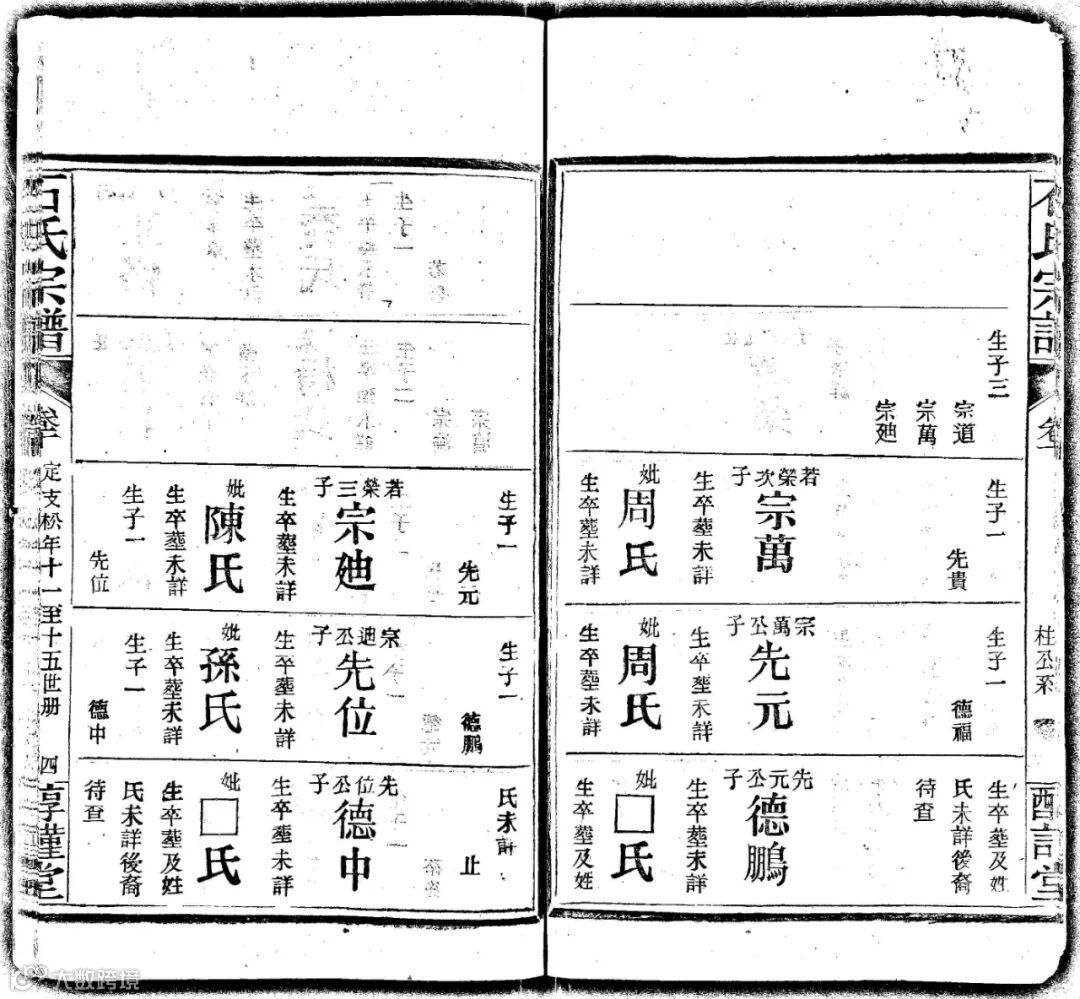 生子三
宗道
宗萬
宗廸
生子一
先貴
若榮次子
宗萬
生卒塟未詳
妣
周氏
生卒塟未詳
生子一
德福
宗萬公子
先元
生卒塟未詳
妣
周氏
生卒塟未詳
生卒塟及姓
氏未詳後裔
待查
先元公子
德鵬
生卒塟未詳
妣
□氏
生卒塟及姓
桂公系
生子一
先元
若榮三子
宗廸
生卒塟未詳
妣
陳氏
生卒塟未詳
生子一
先位
生子一
德鵬
宗廸公子
先位
生卒塟未詳
妣
孫氏
生卒塟未詳
生子一
德中
氏未詳
止
先位公子
德中
生卒塟未詳
妣
□氏
生卒塟及姓
氏未詳後裔
待查
石氏宗譜
定支松年十一至十五世册
四
大数跨境